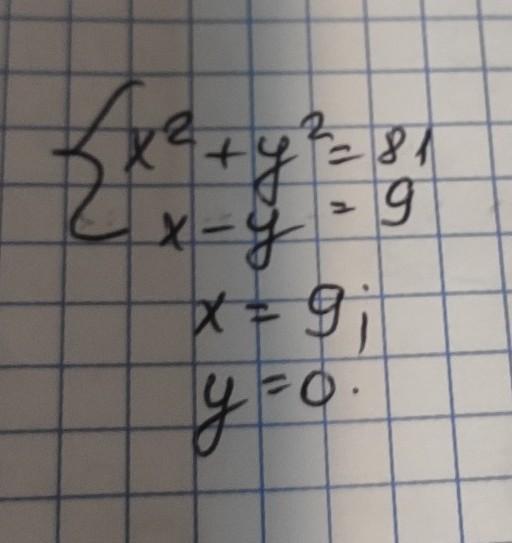 x² + y² = 81
x - y = 9
x = 9;
y = 0.